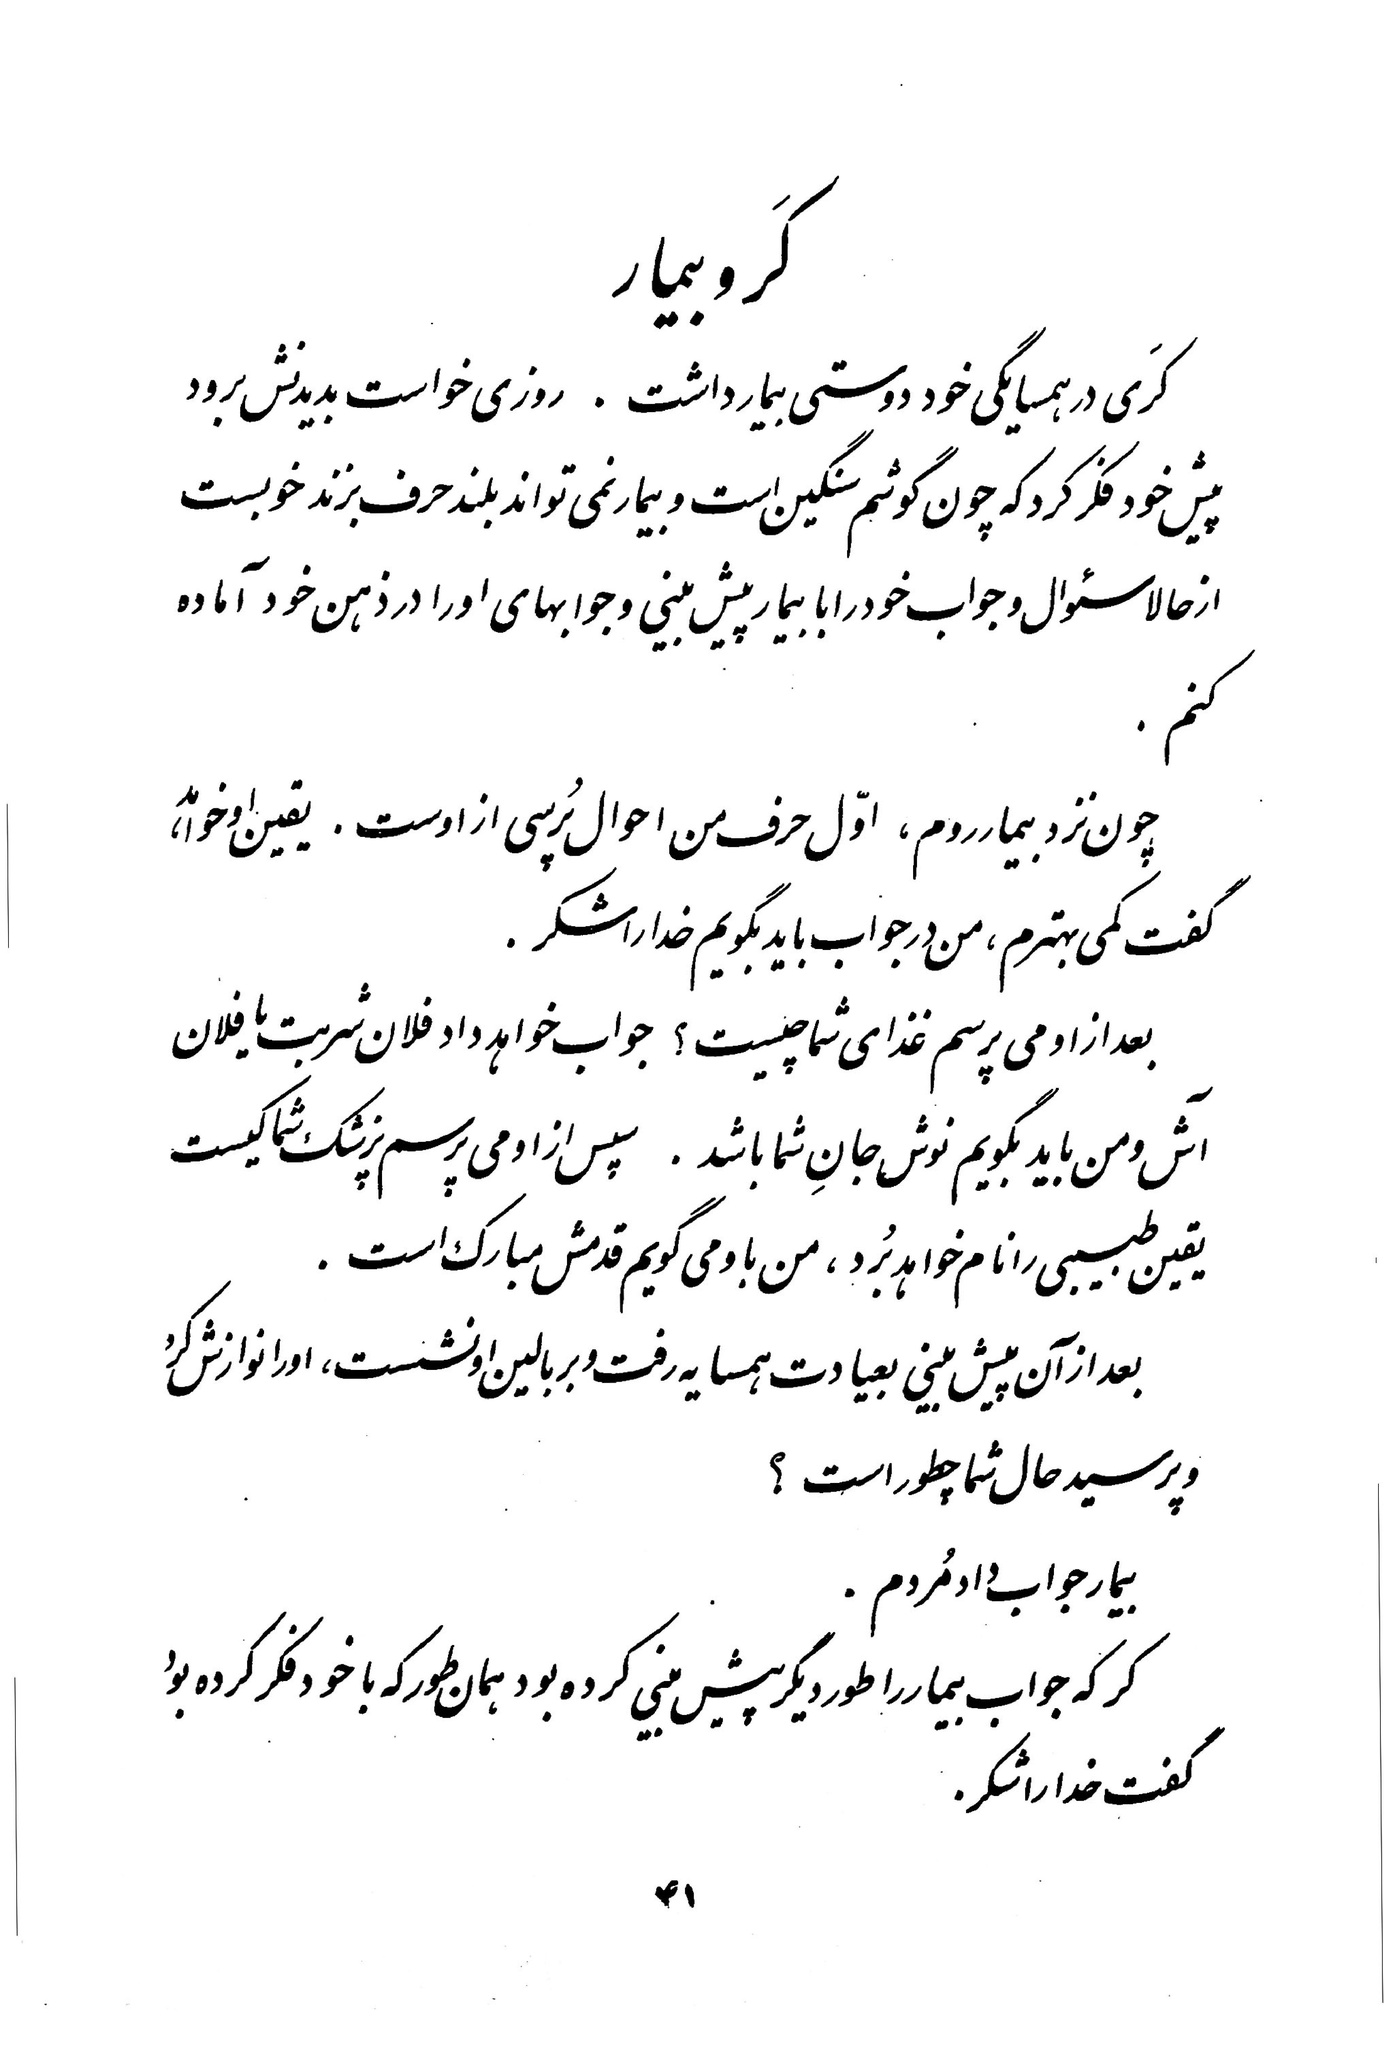 کَر و بیمار
کَری در همسایگی خود دوستی بیمار داشت . روزی خواست بدیدنش برود
پیش خود فکر کرد که چون گوشم سنگین است و بیمار نمی تواند بلند حرف بزند خوبست
از حالا سئوال و جواب خود را با بیمار پیش بینی و جوابهای او را در ذهن خود آماده
کنم .
چون نزد بیمار روم ، اوّل حرف من احوال پُرسی از اوست . یقین او خواهد
گفت کمی بهترم ، من در جواب باید بگویم خدا را شکر .
بعد از او می پرسم غذای شما چیست ؟ جواب خواهد داد فلان شربت یا فلان
آش و من باید بگویم نوش جانِ شما باشد . سپس از او می پرسم پزشک شما کیست
یقین طبیبی را نام خواهد بُرد ، من باو می گویم قدمش مبارک است .
بعد از آن پیش بینی بعیادت همسایه رفت و بر بالین او نشست ، او را نوازش کرد
و پرسید حال شما چطور است ؟
بیمار جواب داد مُردم .
کر که جواب بیمار را طور دیگر پیش بینی کرده بود همان طور که با خود فکر کرده بود
گفت خدا را شکر .
۴۱